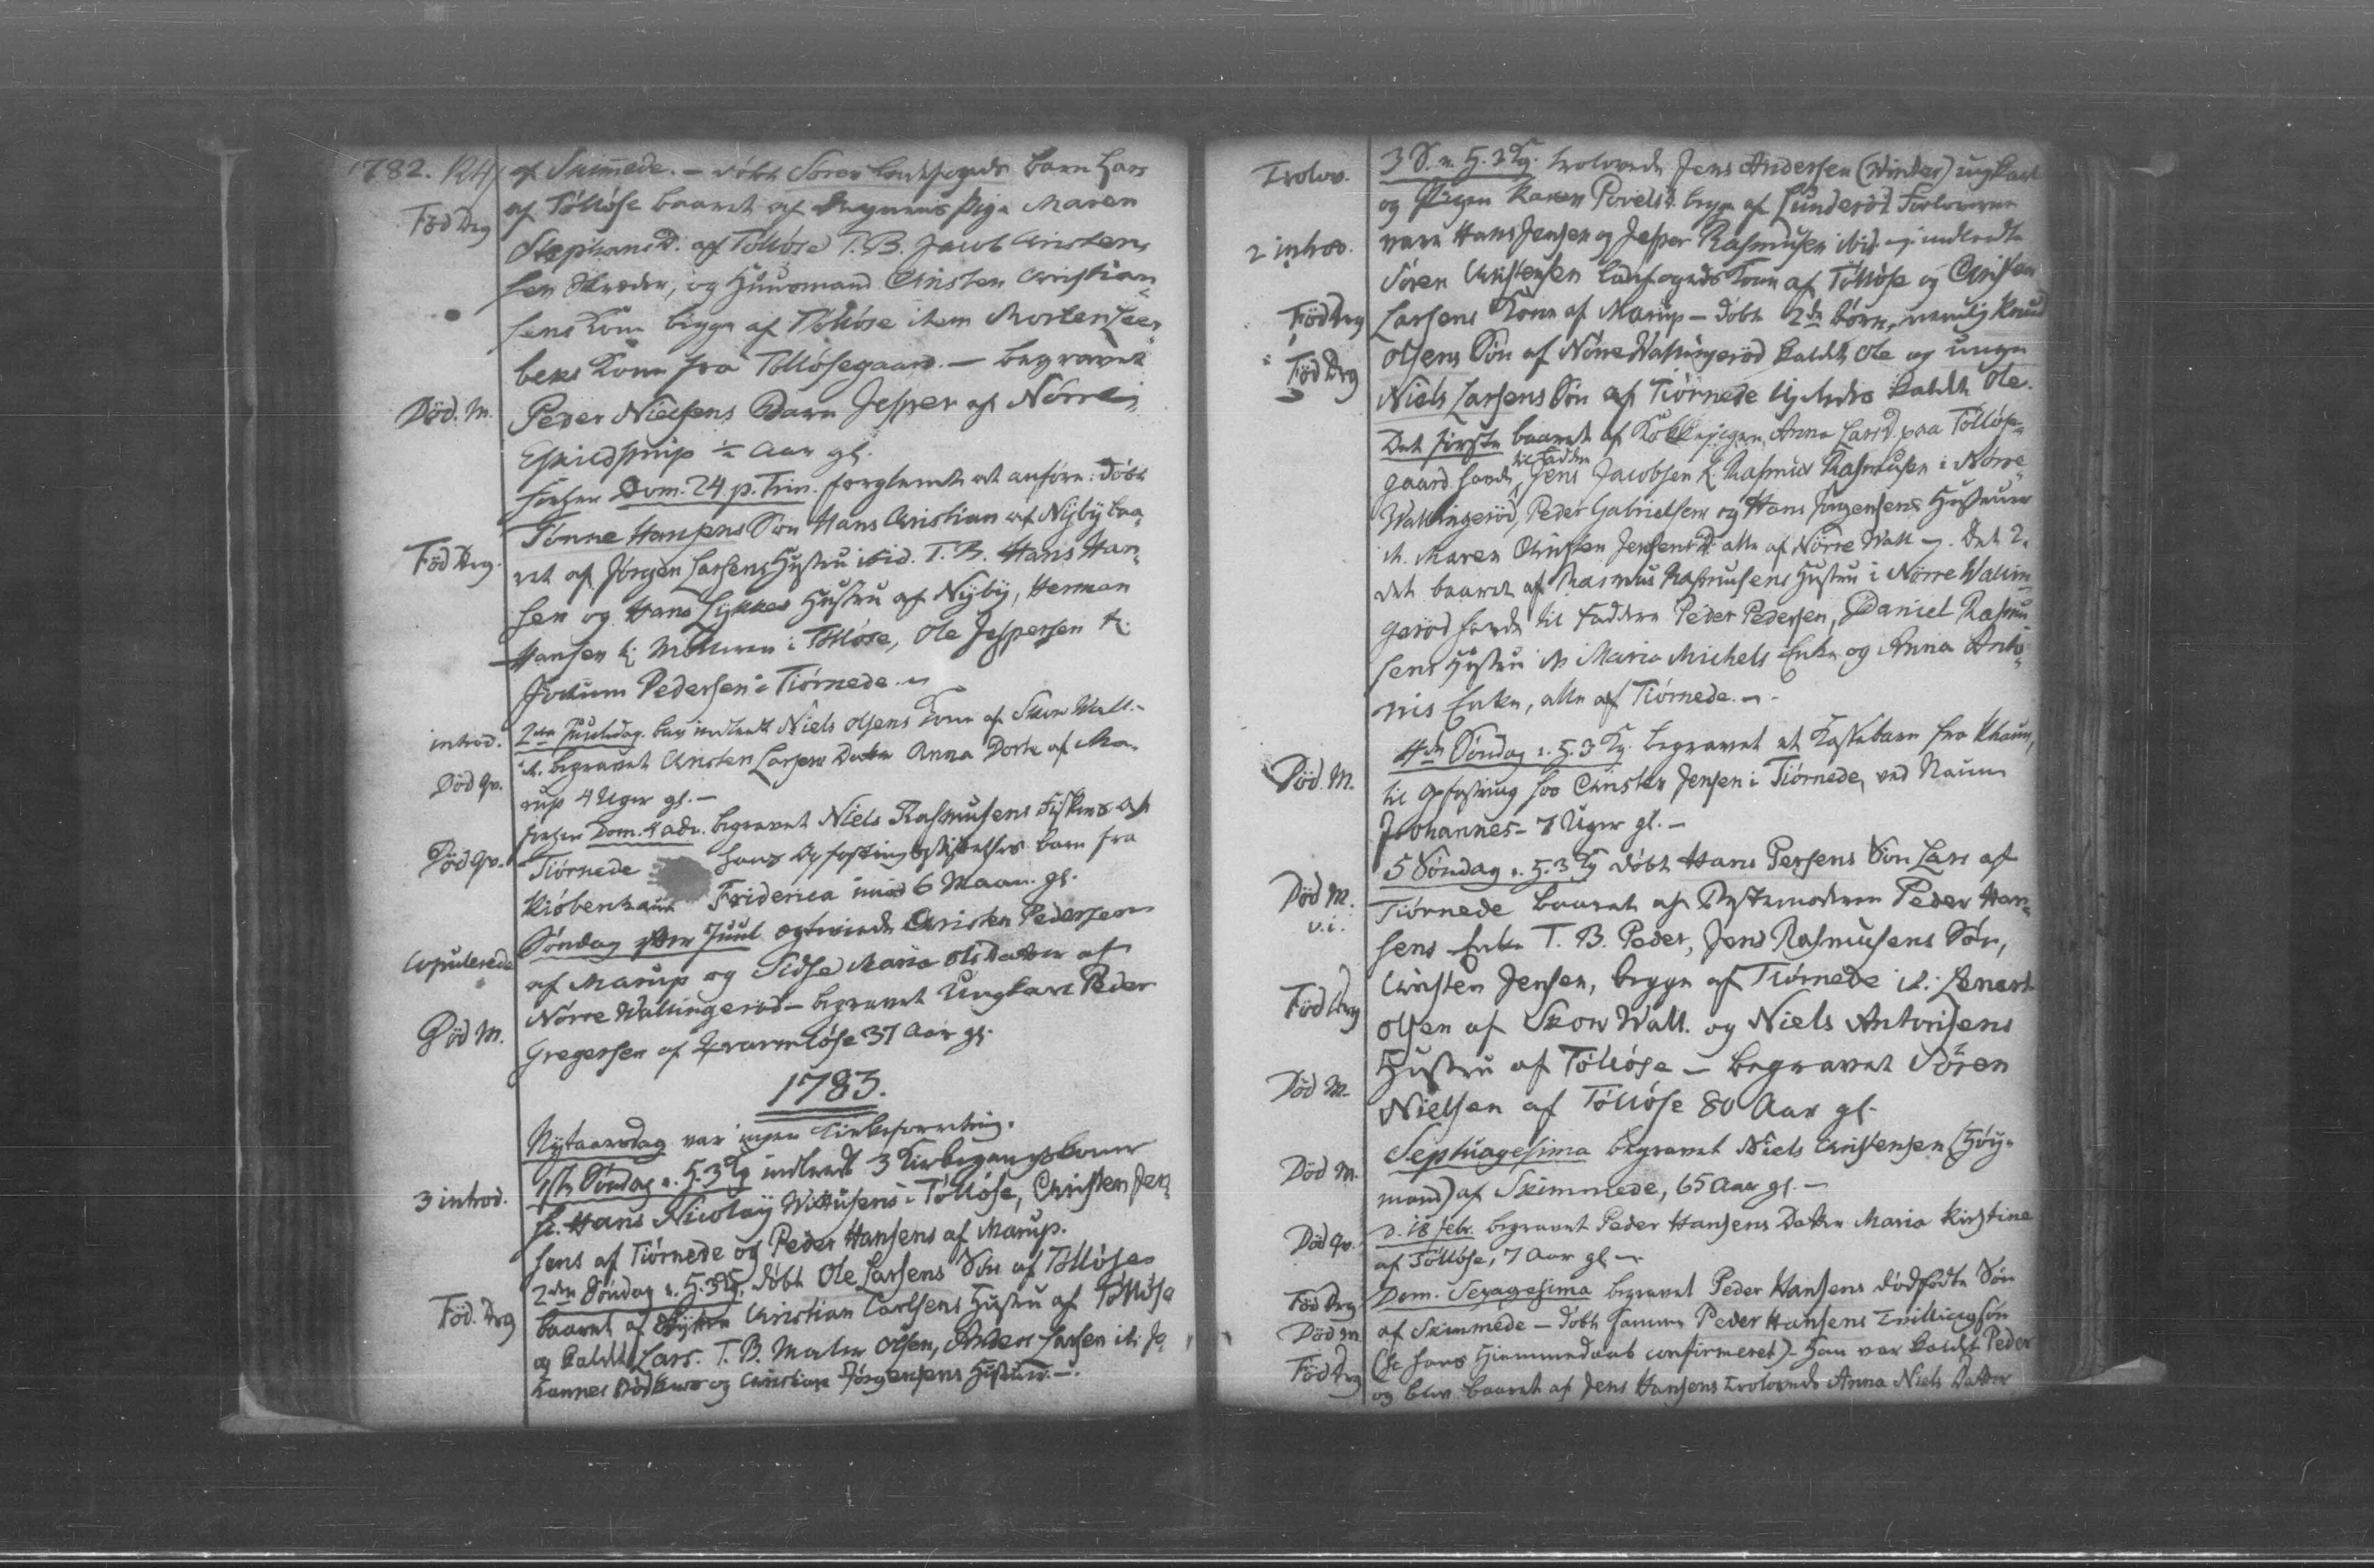 1782.
af Skimmede. – døbt Søren Ladefogeds barn Lars
Fød Drg
af Tölløse baaret af Degnens Pige Maren
StephansD. af Tølløse T. B. Jacob Christen
sen Skræder, og Huusmand Christen Christian
sens Kone begge af Tølløse item Morten
Kone fra Tølløsegaard. – begravet
Död. M.
Peder Nielsens Barn Jesper af Nörre
Eskildstrup ½ Aar gl.
forhen Dom. 24. p. Trin. forglemt at anføre: døbt
Tønne Hansens Søn Hans Christian af Nÿbÿ baa
Föd Drg.
ret af Jörgen Larsens Hustru ibid. T. B. Hans Han
sen og Hans Lykkes Hustru af Nÿbÿ, Herman
Hansen k: Mölleren i Tölløse, Ole Jespersen k:
Jochum Pedersen i Tiörnede.
introd.
2den Juuledag. blev indledt Niels Olsens Kone af Skov Wall.
Död qv.
it. begravet Christen Larsens Datter Anna Dorte af Ma
rup 4 Uger gl. –
Död qv.
forhen Dom. 4 adv. begravet Niels Rasmusens Fiskers af
Tiörnede hans Opfostrings barn fra
Kiöbenhavn Friderica 6 Maan. gl.
Copulerede
Søndag efter Juul egteviede Christen Pedersen
af Marup og Sidse Maria OlsDatter af
Nörre Wallingeröd – begravet Ungkarl Peder
Död M.
Gregersen af Qvarmløse 37 Aar gl.
1783.
Nytaarsdag var ingen Kirkeforretning.
1ste Søndag e. H. 3 Kg indledt 3 Kirkegangskoner
3 introd.
Hr. Hans Nicolaÿ i Tölløse, Christen Jen
sens af Tiörnede og Peder Hansens af Marup.
2den Søndag e. H. 3 Kg. døbt Ole Larsens Søn af Tölløse
Föd. Drg
baaret af Christian Carlsens Hustru af Tölløse
og kaldt Lars. T. B. Olsen, Anders Larsen it: Jo
hannes og Christian Jörgensens Hustruer. –
Trolov.
3 S. e. H. 3 Kg. trolovede Jens Andersen (Winder) ungkarl
og Pigen Karen PovelsD. begge af Lunderød Forloverne
2 introd.
vare Hans Jensen og Jesper Rasmusen ibid. og indledte
Sören Christensen Ladefogeds Kone af Tölløse og Christen
Föd Drg
Larsens Kone af Marup – döbt 2de børn, nemlig Knud
Föd Drg
Olsens Søn af Nörre Wallingeröd kaldt Ole og unge
Niels Larsens Søn af Tiörnede kaldt Ole.
Det første baaret af Kokkepigen Anna LarsD. paa Tölløse
gaard. havde til Faddere Jens Jacobsen k. Rasmus Rasmusen i Nørre
Wallingeröd, Peder Gabrielsens og Hans Jørgensens Hustruer
it. Maren Christen JensensD. alle af Nörre Wall –. Det 2.
det baaret af Rasmus Rasmusens Hustru i Nörre Wallin
geröd havde til Faddere Peder Pedersen, Daniel Rasmu
sens Hustru it. Maria Michels Enke og Anna Anto
nis Enke, alle af Tiörnede. –.
4de Søndag e. H. 3 Kg. begravet et Kostbarn fra Khaun,
Död M.
til Opfostring hos Christen Jensen i Tiörnede, ved Navn
Johannes – 7 Uger gl. –
5 Søndag e. H. 3 Kg döbt Hans Persens Søn Lars af
Död M.
v. i.
Tiörnede baaret af Peder Han
sens Enke T. B. Peder, Jens Rasmusens Søn,
Föd Drg
Christen Jensen, begge af Tiörnede it. Lenert
Olsen af Skov Wall. og Niels Antonisens
Hustru af Tölløse – begravet Sören
Död M.
Nielsen af Tölløse 80 Aar gl.
Septuagesima begravet Niels Christensen (Höÿ-
Död M.
mand) af Skimmede, 65 Aar gl. –
Död qv.
D. 18 febr. begravet Peder Hansens Datter Maria Kirstine
af Tölløse, 7 Aar gl –.
Föd Drg
Dom. Sexagesima begravet Peder Hansens dødfödte Søn
Död m
af Skimmede – döbt samme Peder Hansens Tvillingsön
Föd Drg
( hans Hiemmedaab confirmeret) – Han var kaldt Peder
og blev baaret af Jens Hansens trolovede Anna Niels Datter